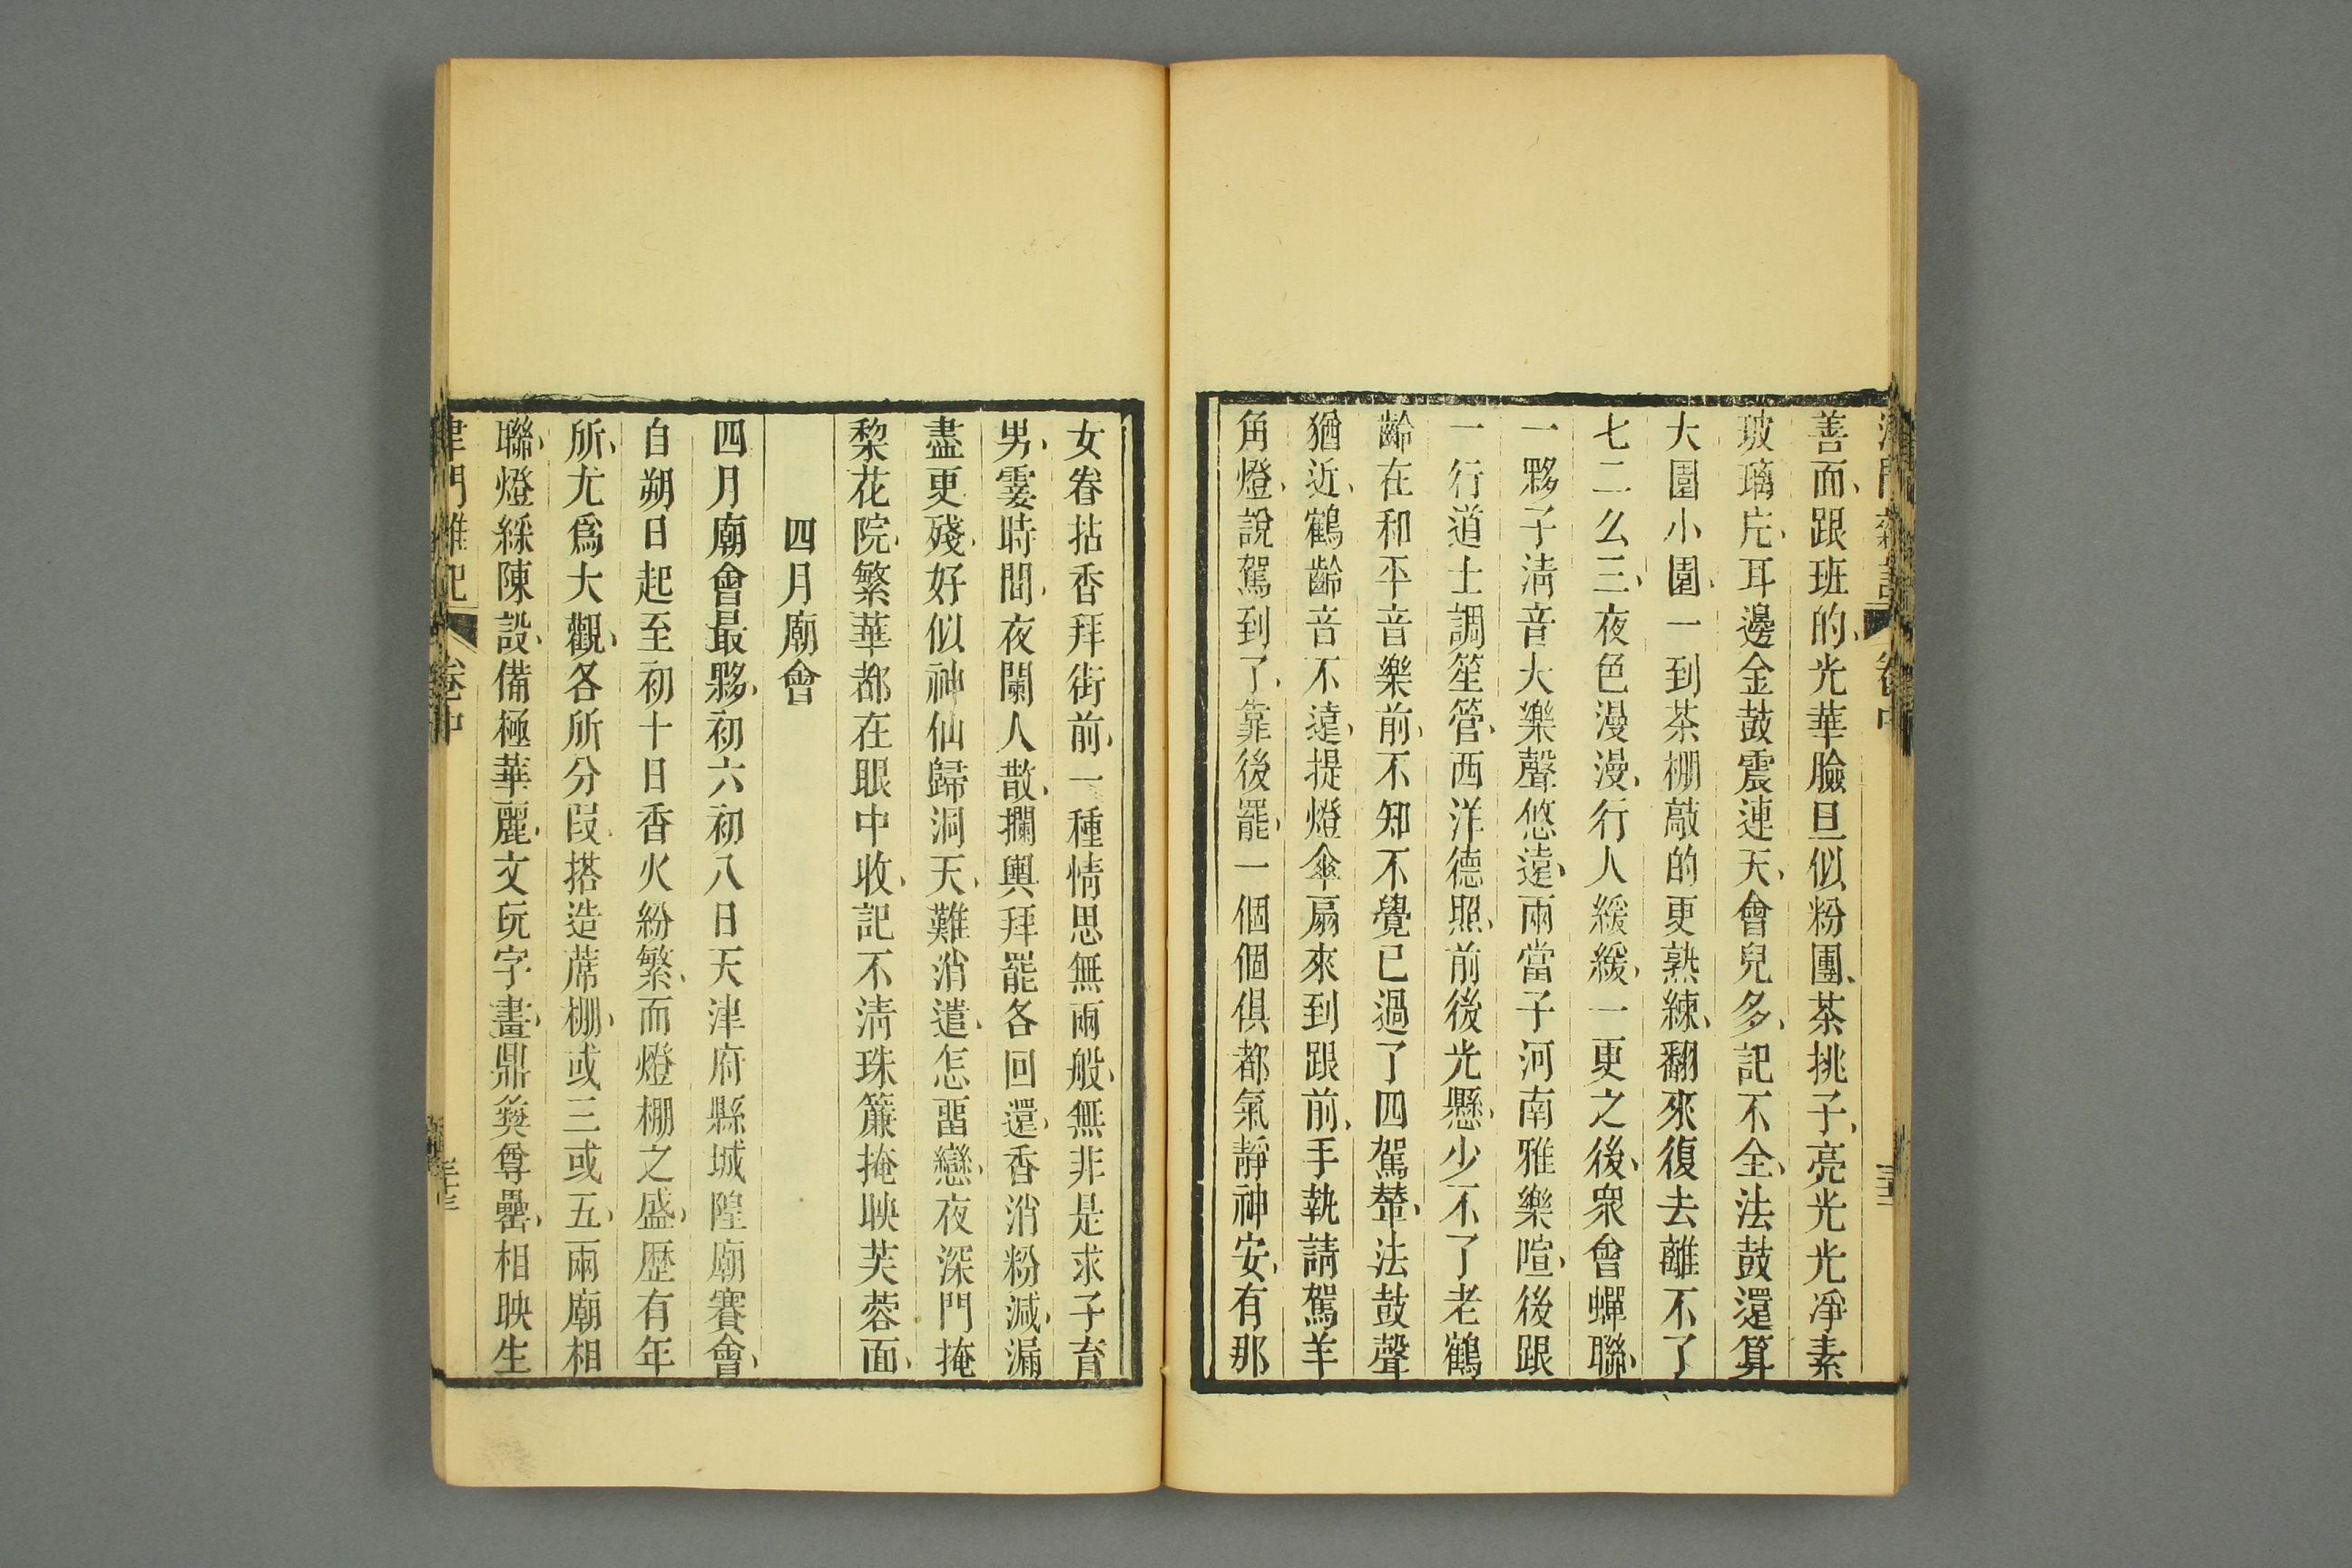 津門雜記 卷中
善面、跟班的、光華臉旦似粉團、茶挑子、亮光光淨素
玻璃片、耳邊金鼓震連天、會兒多、記不全、法鼓還算
大園小園、一到茶棚敲的更熟練、翻來復去離不了
七二么三、夜色漫漫、行人緩緩、一更之後、衆會蟬聯、
一夥子清音大樂聲悠遠、兩當子河南雅樂喧、後跟
一行道士調笙管、西洋德照、前後光懸、少不了老鶴
齡在和平音樂前、不知不覺已過了四駕輦、法鼓聲
猶近、鶴齡音不遠、提燈傘扇來到跟前、手執請駕羊
角燈、說駕到了、靠後罷、一個個俱都氣靜神安、有那
女眷拈香拜街前、一種情思無兩般、無非是求子育
男、霎時間、夜闌人散、攔輿拜罷各回還、香消粉減、漏
盡更殘、好似神仙歸洞天、難消遣、怎畱戀、夜深門掩
梨花院、繁華都在眼中收、記不清珠簾掩映芙蓉面、
四月廟會
四月廟會最夥、初六初八日天津府縣城隍廟賽會、
自朔日起至初十日香火紛繁、而燈棚之盛、歷有年
所、尤爲大觀、各所分段、搭造蓆棚、或三或五、兩廟相
聯、燈綵陳設、備極華麗、文玩字畫、鼎彝尊罍、相映生
津門雜記 卷中